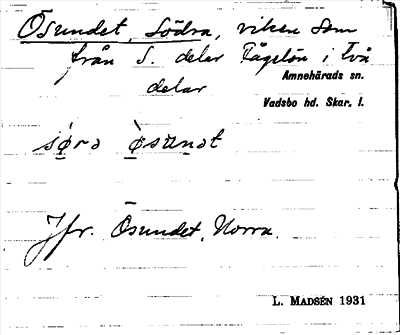 Ösundet, Södra, viken som
från S. delar Fågelön i två
Amnehärads sn.
delar
Vadsbo hd. Skar. l.
Jfr. Ösundet, Norra.
L. MADSÉN 1931